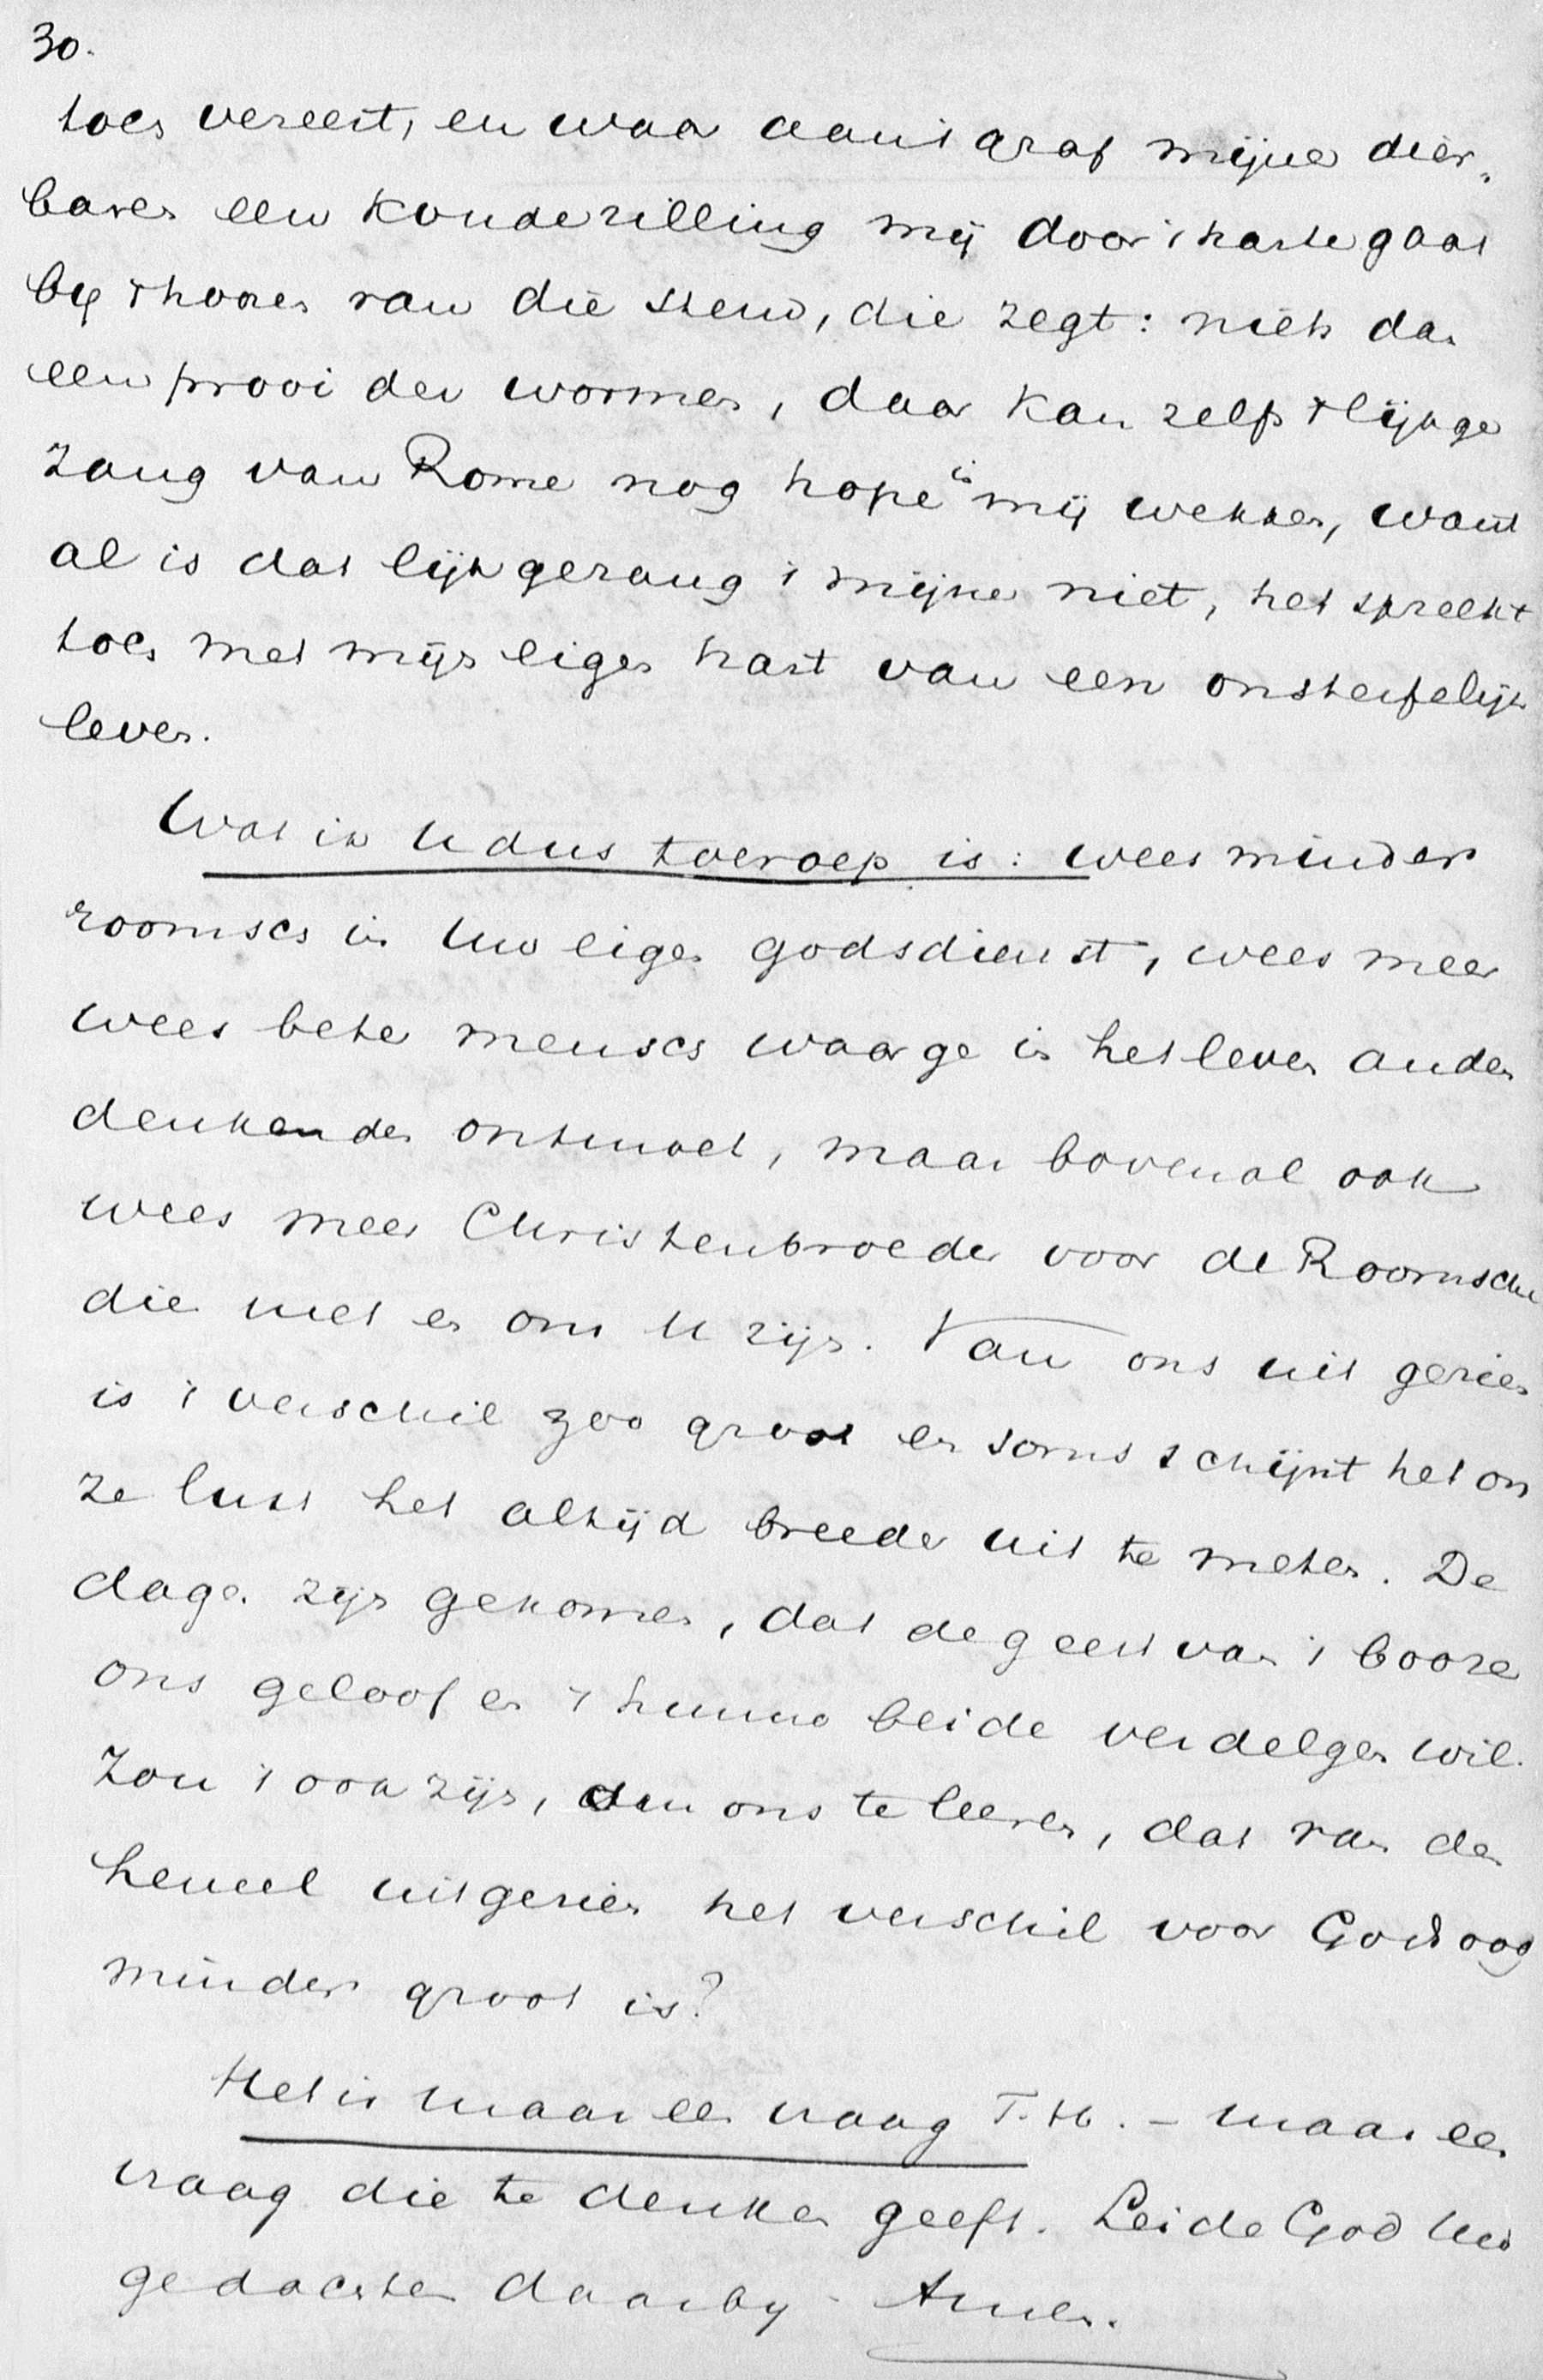 30.
toch vereert, en waar aan 't graf mijner dier-
baren een koude rilling mij door 't harte gaat
bij 't hooren van die stem, die zegt: niets dan
een prooi der wormen, daar kan zelfs 't lijkge
zang van Rome nog hope in mij wekken, want
al is dat lijkgezang 't mijne niet, het spreekt
toch met mijn eigen hart van een onsterfelijk
leven.
Wat ik U dus toeroep is: wees minder
roomsch in Uw eigen godsdienst, wees meer
wees beter mensch waar ge in het leven anders
denkenden ontmoet, maar bovenal ook
wees meer Christenbroeder voor de Roomschen
die met en om U zijn. Van ons uit gezien
is 't verschil zoo groot en soms schijnt het on
ze lust het altijd breeder uit te meten. De
dagen zijn gekomen, dat de geest van 't booze
ons geloof en 't hunne beide verdelgen wil.
Zou 't ook zijn, om ons te leeren, dat van den
hemel uitgezien het verschil voor Gods oog
minder groot is?
Het is maar een vraag T. H. - maar een
vraag die te denken geeft. Leide God Uw
gedachten daarbij - Amen.